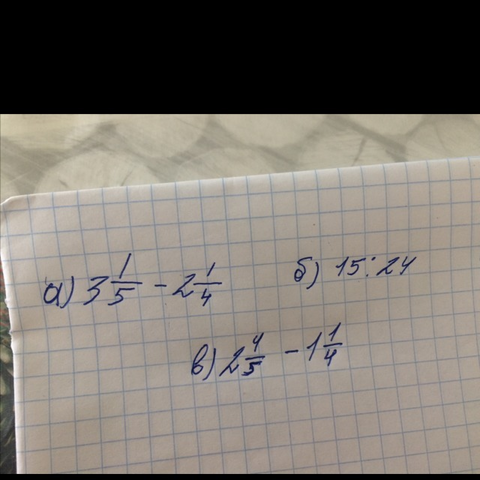 а) 3 1/5 - 2 1/4 б) 15:24
в) 2 4/5 - 1 1/4